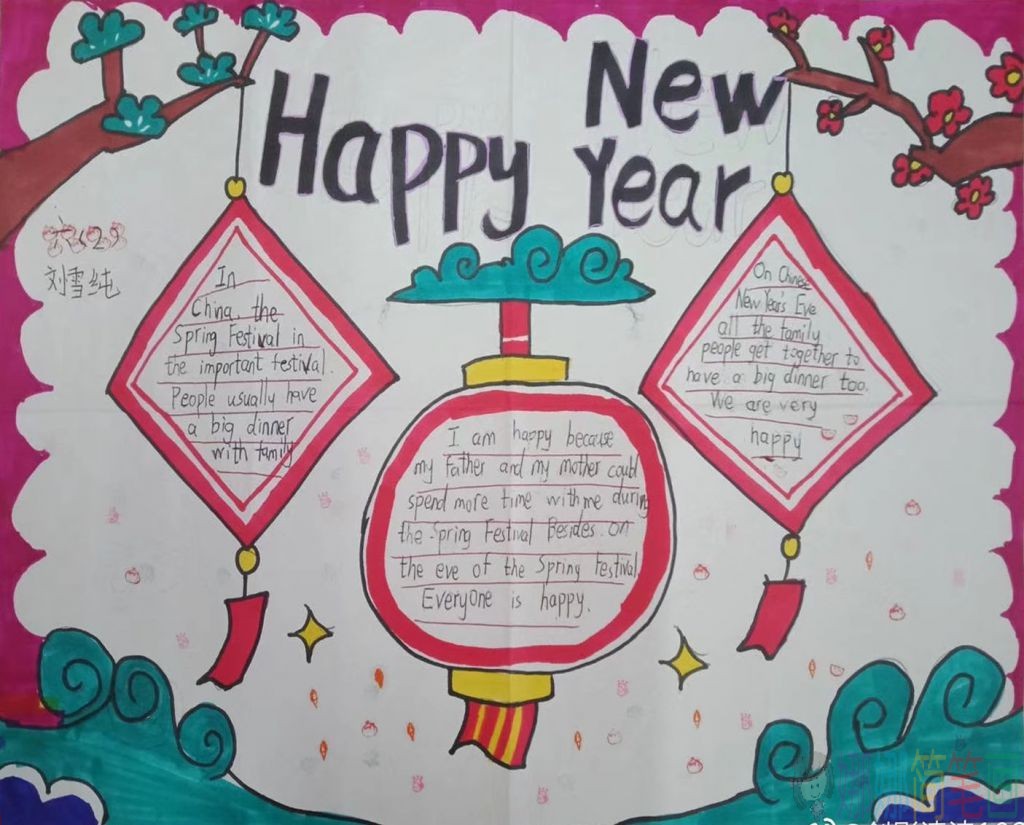 Happy New Year
刘雪纯
In
China, the
Spring Festival in
the important festival.
People usually have
a big dinner
with family
On Chinese
New Year's Eve
all the family
people get together to
have a big dinner too.
We are very
happy
I am happy because
my father and my mother could
spend more time with me during
the Spring Festival Besides. on
the eve of the Spring Festival
Everyone is happy.